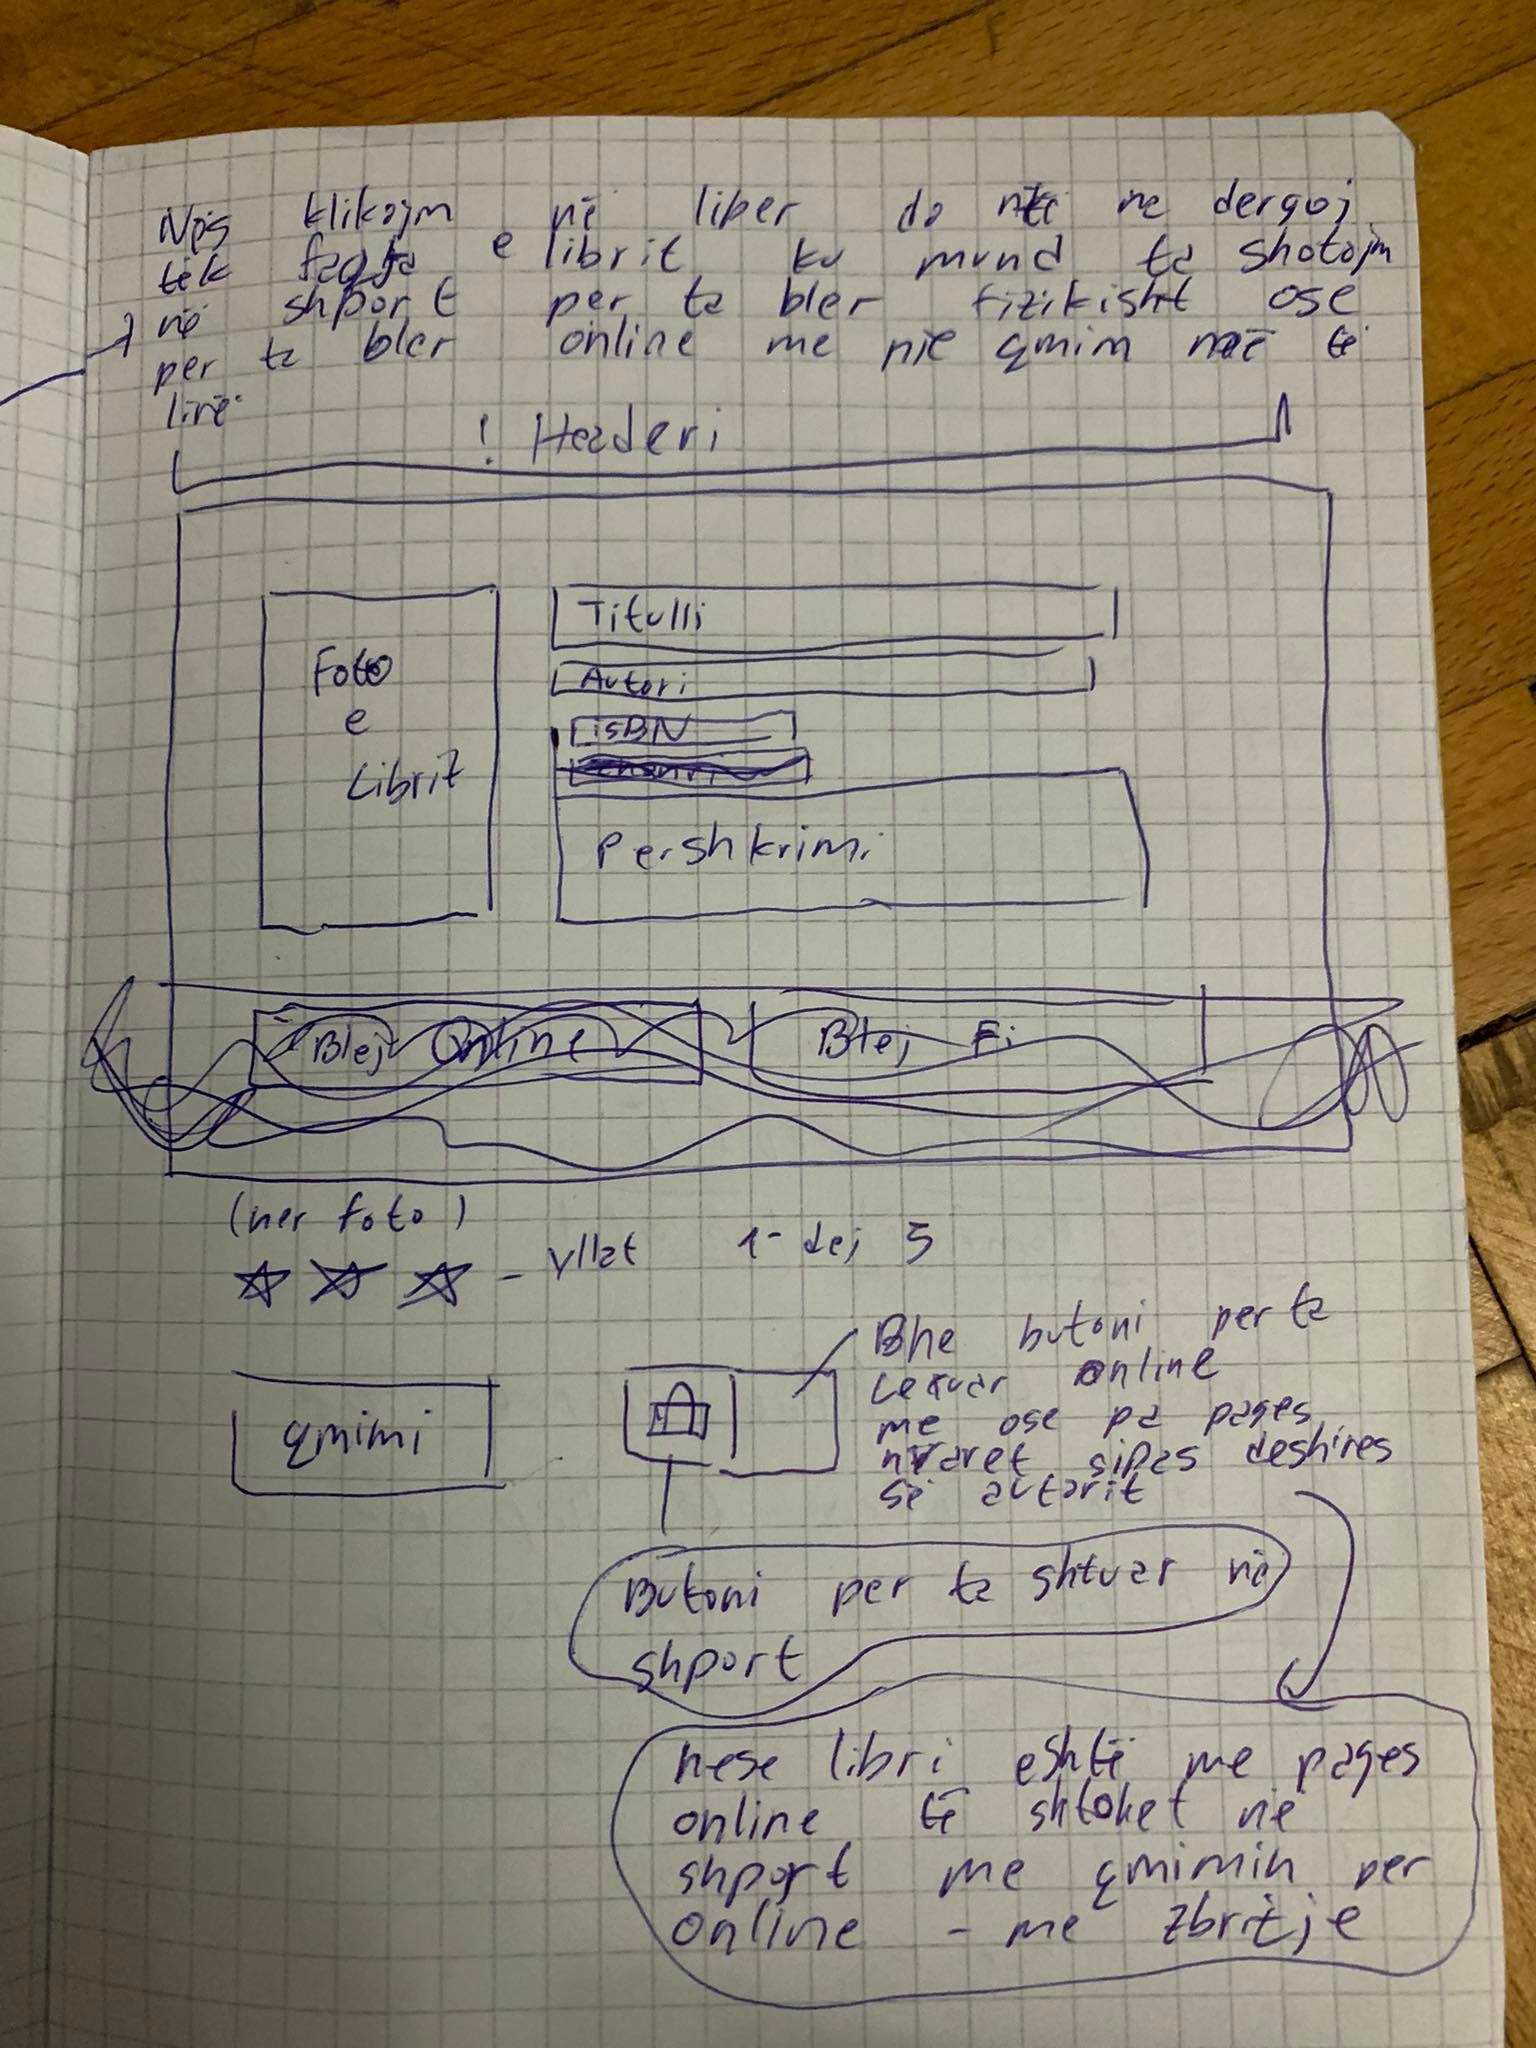 Nqs klikojm në liber do të na dergoj
tek faqja e librit ku mund ta shotojm
në shport per ta bler fizikisht ose
per ta bler online me një qmim më të
lirë
! Headeri
Foto
e
Librit
Titulli
Autori
isBN
Pershkrimi
Blej Online
Blej Fi
(ner foto)
- yllat 1- dej 5
qmimi
Dhe butoni per ta
Lexuar online
me ose pa pages
nvaret sipas deshires
së autorit
Butoni per ta shtuar në
shport
nese libri eshtë me pages
online të shtohet në
shport me qmimin per
online - me zbritje